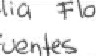 lia Flo
uentes